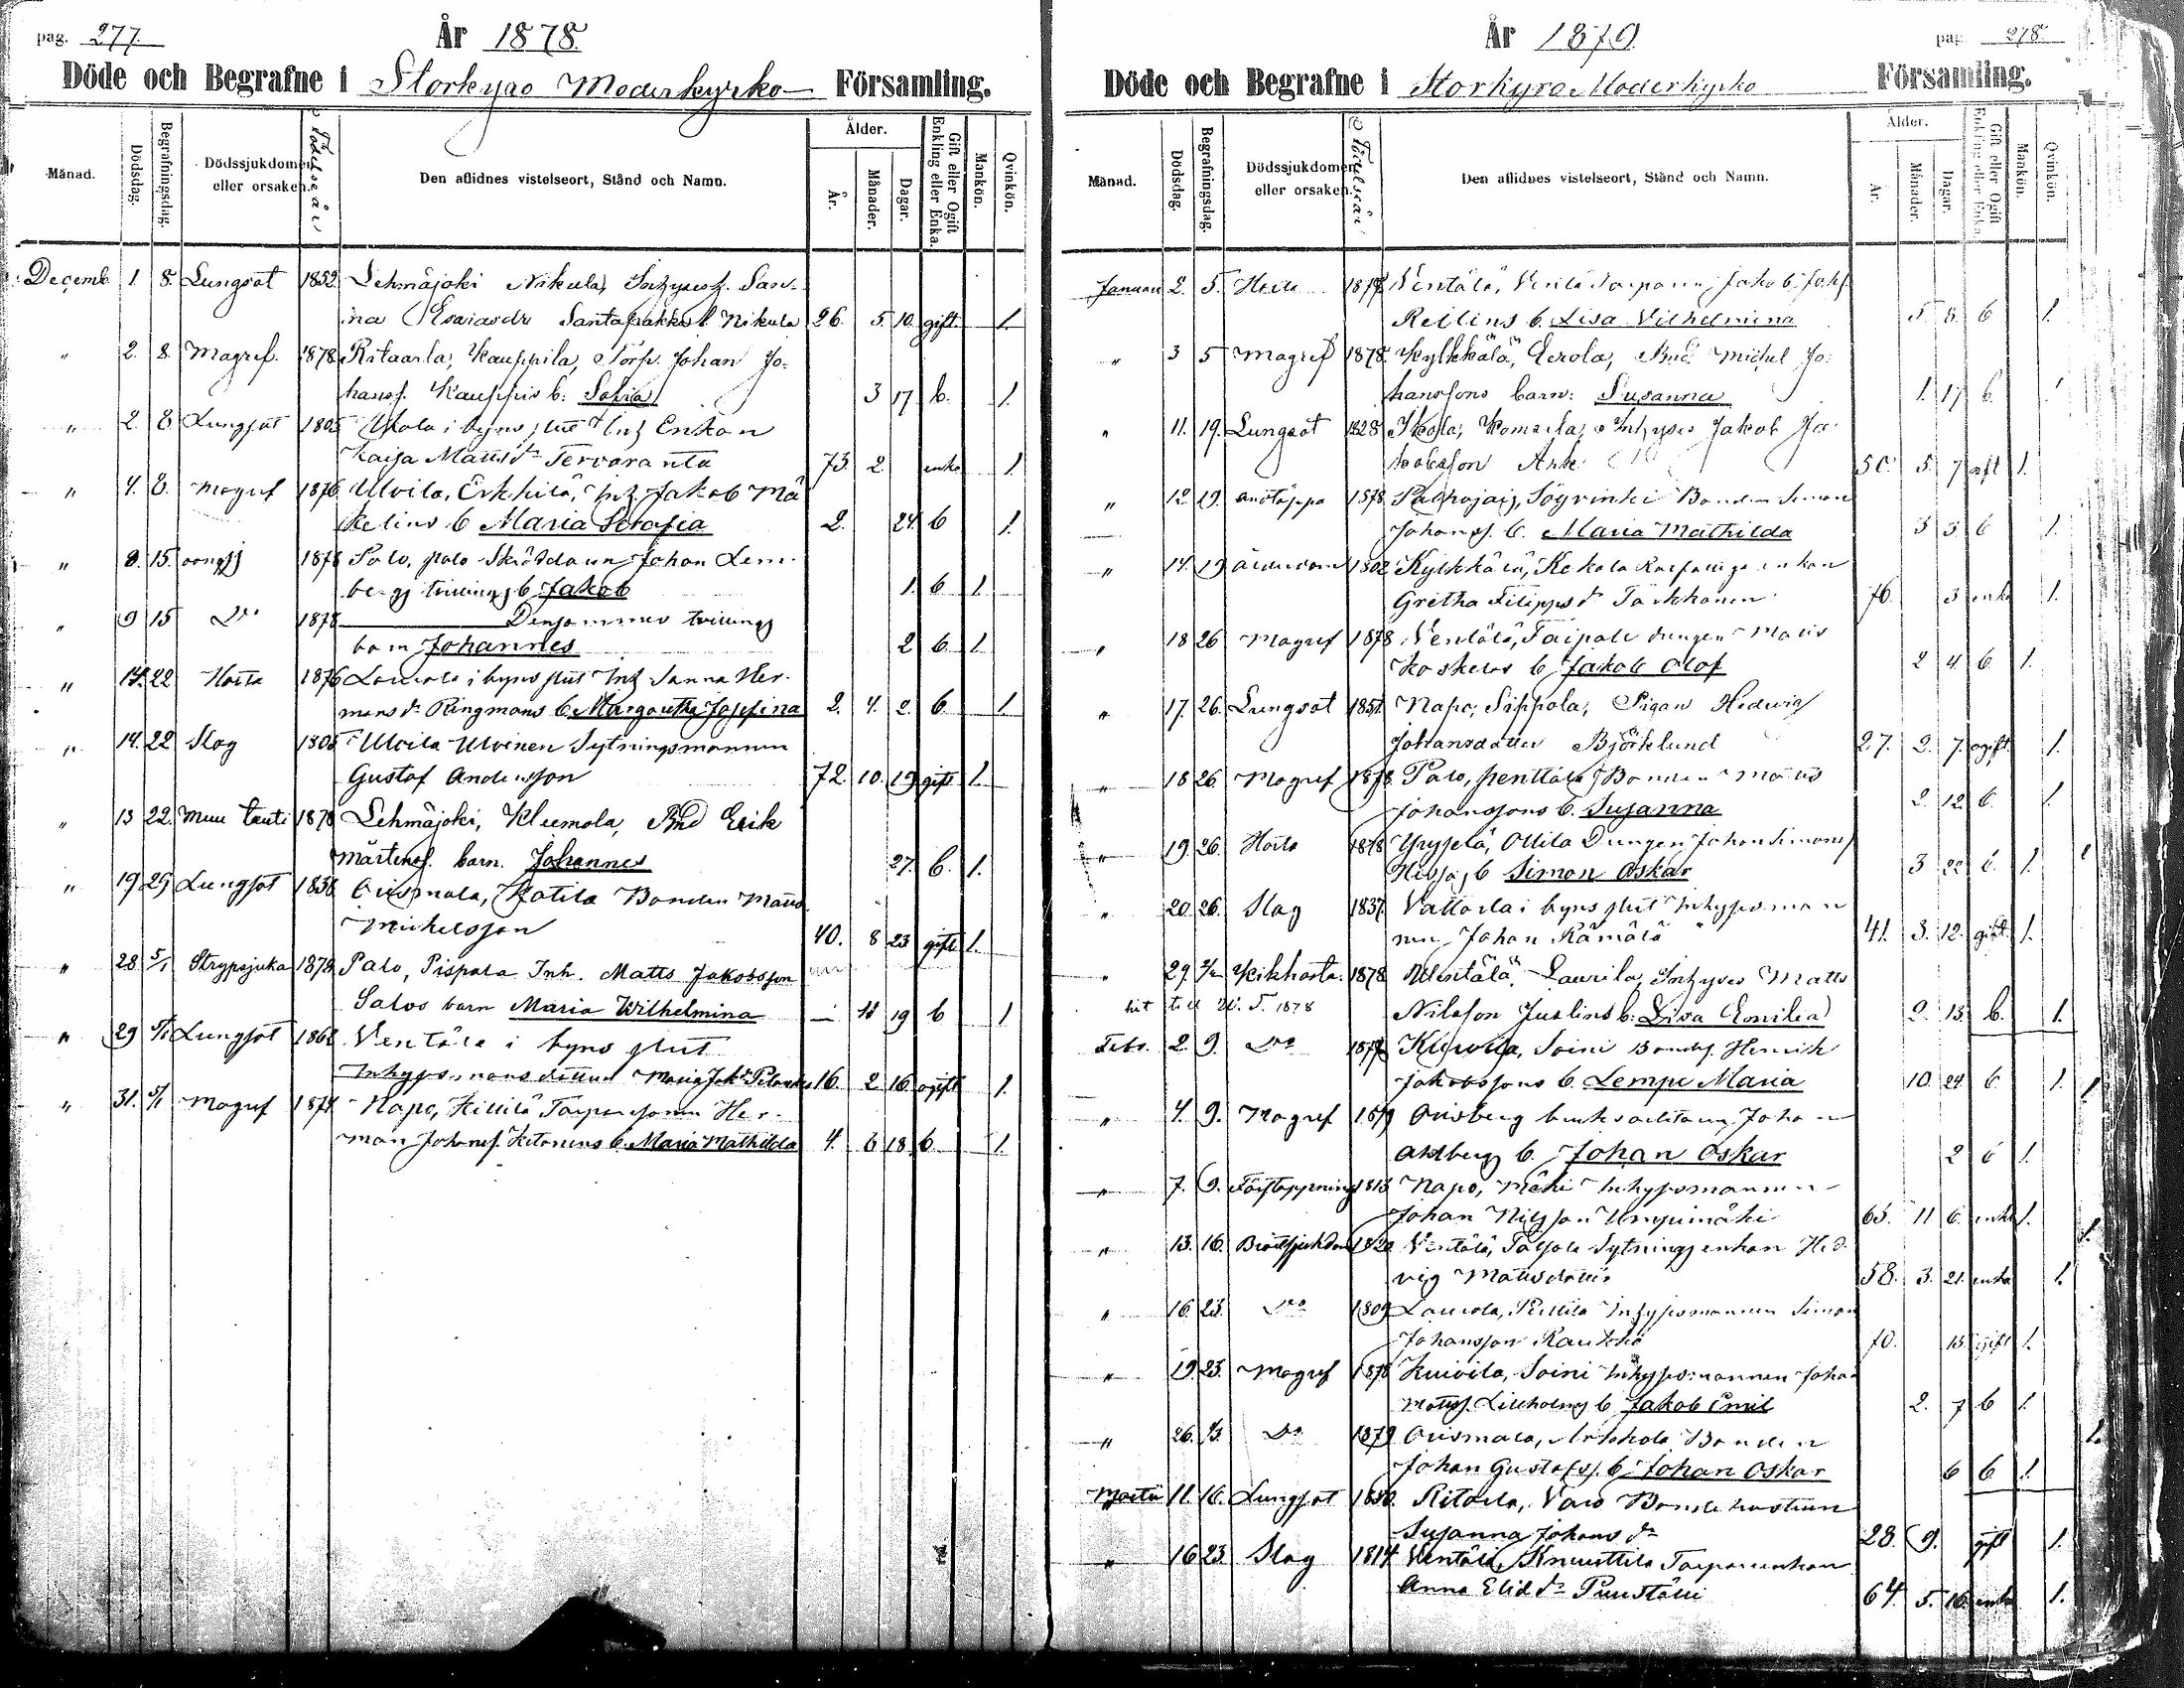 pag. 277.
År 1878.
Döde och Begrafne i Storkyro Moderkyrko Församling.
Månad.
Dödsdag.
Begrafningsdag.
Dödssjukdomen eller orsaken.
Födelseår
Den aflidnes vistelseort, Stånd och Namn.
Ålder.
År.
Månader.
Dagar.
Gift eller Ogift
Enkling eller Enka.
Mankön.
Qvinkön.
Decemb 1. 8. Lungsot 1852 Lehmäjoki Nikula,
Esaiasdr Nikula 26. 5. 10. gift. 1.
" 2. 8. Magref. 1878 Ritaarla, Kauppila, Torp. Johan Jo-
hanss. Kauppis b: Sofia 3 17 b. 1.
" 2. 8 Lungsot 1805 Ulvila i byns slut Inh Enkan
Kaisa Mattsdr Tervaranta 73. 2 enka 1.
" 4. 8. Magref 1876 Ulvila, Erkkilä, Inh. Jakob Mä
kelins b Maria Serafia 2. 24. b 1.
" 8. 15. 1878 Palo, palo Skräddaren Johan Lem-
bergs tvilling b Jakob 1. b 1.
" 9 15 Do 1878 Densammes tvilling
barn Johannes 2 b 1
" 14. 22 Hosta 1876 Laurola i byns slut Inh Sanna Her-
mans dr Ringmans b Margaretha Josefina 2. 4. 2. b. 1.
" 14. 22 Slag 1805 Ulvila Ulvinen Sytningsmannen
Gustaf Andersson 72. 10. 19 gift 1.
" 13 22. Muu tauti 1878 Lehmäjoki, Kleemola, Bnd Erik
Mårtenss. barn. Johannes 27. b. 1.
" 19 29 Lungsot 1838 Orismala, Kotila Bonden Matts
Michelsson 40. 8 23 gift 1.
" 28. 5/1 Strypsjuka 1878 Palo, Pispala Inh. Matts Jakobsson
Salos barn Maria Wilhelmina 19 b 1
" 29 5/1 Lungsot 1862 Ventälä i byns slut
Inhysesmans dottren Maria Jak. dr 16. 2 16 ogift 1.
" 31. 5/1 Magref 1874 Napo, Kiltilä Torparesonen Her-
man Johanss. Ketonens b. Maria Mathilda 4. 6 18 b. 1.
År 1879.
pag. 278.
Döde och Begrafne i Storkyro Moderkyrko Församling.
Månad.
Dödsdag.
Begrafningsdag.
Dödssjukdomen eller orsaken.
Födelseår
Den aflidnes vistelseort, Stånd och Namn.
Ålder.
År.
Månader.
Dagar.
Gift eller Ogift
Enkling eller Enka.
Mankön.
Qvinkön.
Januari 2. 5. Ventälä, Jakob Joh.
Reilins b. Lisa Vilhelmina 5 8 b 1.
" 3 5 Magref 1878 Kylkkälä, Eerola, Bnd. Michel Jo-
hanssons barn: Susanna 1. 17 b. 1
" 11. 19. Lungsot 1828 Ikola, Komsila, Inhyses Jakob Ja-
kobsson 50. 5. 7 gift 1.
" 12 19. andtäppa 1878 Palhojais, Söyrinki Bonden Simon
Johanss. b. Maria Mathilda 3 3 b 1.
" 14. 19 ålderdom 1802 Kylkkälä, Kekola enkan
Gretha Filippsdr 76. 3 enka 1.
" 18 26 Magref 1878 Ventälä, Taipale drengen Matts
Koskelas b Jakob Olof 2 4 b 1.
" 17. 26. Lungsot 1851. Napo, Sippola, Pigan Hedvig
Johansdotter Björklund 27. 2. 7. ogift. 1.
" 18 26. Magref 1878 Palo, Penttala Bonden Matts
Johanssons b. Susanna 2. 12 b. 1.
" 19. 26. Hosta 1878 Yryselä, Ottila Drengen Johan Simons
b Simon Oskar 3 22 b. 1.
" 20. 26. Slag 1837. Vallarla i byns slut Inhysesman
nen Johan Rämälä 41. 3. 12. gift. 1.
" 29. 2/2 Kikhosta. 1878 Wentälä, Laurila, Inhyses Matts
hit till U. T. 1878 Nilsson Juslins b: Lisa Emilia 2. 13. b. 1.
Febr. 2. 9. Do Kuivila, Soini Bonds. Henrik
Jakobssons b. Lempi Maria 10. 24 b. 1.
" 4. 9. Magref 1879 Orisberg bruksarbetaren Johan
Ahlberg b. Johan Oskar 2 b 1.
" 7. 9. Förstoppning 1813 Napo, Mäki Inhysesmannen
Johan Nilsson 65. 11 6. enkl 1.
" 13. 16. Bröstsjukdom 1820 Ventälä, Talsola Sytningsenkan Hed-
vig Mattsdotter 58. 3. 21. enka 1.
" 16. 23. Do 1809 Laurola, Inhysesmannen Simon
Johansson 70. 13 gift 1.
" 19. 23. Magref 1878 Kuivila, Soini Inhysesmannen Johan
Mattss. Lillholms b Jakob Emil 2. 7 b 1.
" 26. Do 1879 Orismala, Bonden
Johan Gustafss. b. Johan Oskar 6 b 1.
Martii 11. 16. Lungsot 1850. Ritarla, Bondehustrun
Susanna Johans dr 28. 9. gift 1.
" 16 23. Slag 1814 Ventälä, Knuuttila Torpareenkan
Anna Elid dr 64. 5. 16. enka 1.